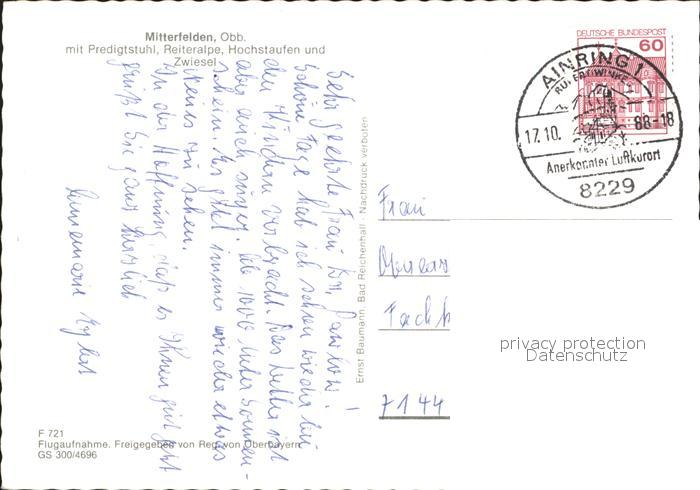 Mitterfelden, Obb.
mit Predigtstuhl, Reiteralpe, Hochstaufen und
Zwiesel
DEUTSCHE BUNDESPOST
60
AINRING 1
RUPERTIWINKEL
17.10. 88-18
Anerkannter Luftkurort
8229
Sehr geehrte Frau
schöne Tage hab ich schon wieder bei
den verbracht. Das Wetter ist
aber auch super. Ab 1000 Meter Sonnen-
schein. Es gibt immer wieder etwas
Neues zu sehen.
In der Hoffnung, daß es Ihnen gut geht
grüßt Sie ganz herzlich
Annemarie
Ernst Baumann, Bad Reichenhall · Nachdruck verboten
Frau
Fach
7144
privacy protection
Datenschutz
F 721
Flugaufnahme. Freigegeben von Reg. von Oberbayern
GS 300/4696